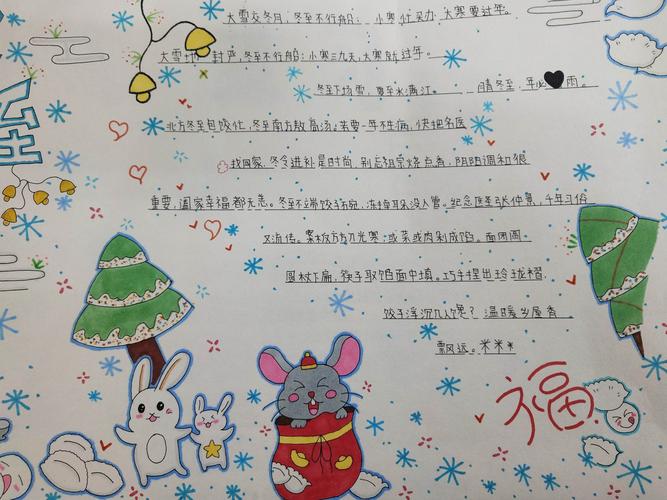 大雪交冬月，冬至不行船；小寒忙买办，大寒要过年。
大雪地封严，冬至不行船；小寒三九天，大寒就过年。
冬至下场雪，夏至水满江。 晴冬至，年必雨。
北方冬至包饺忙，冬至南方熬高汤；若要一年不生病，快把名医
找回家。冬令进补是时尚，别忘祖宗烧点香，阴阳调和很
重要，阖家幸福都无恙。冬至不端饺子碗，冻掉耳朵没人管。纪念医圣张仲景，千年习俗
又流传。素秋方方刀光寒，或菜或肉剁成馅。面团
圆杖下扁，筷子取馅面中填。巧手捏出玲珑褶，
饺子浮沉几人馋？温暖乡屋香
飘远。
福